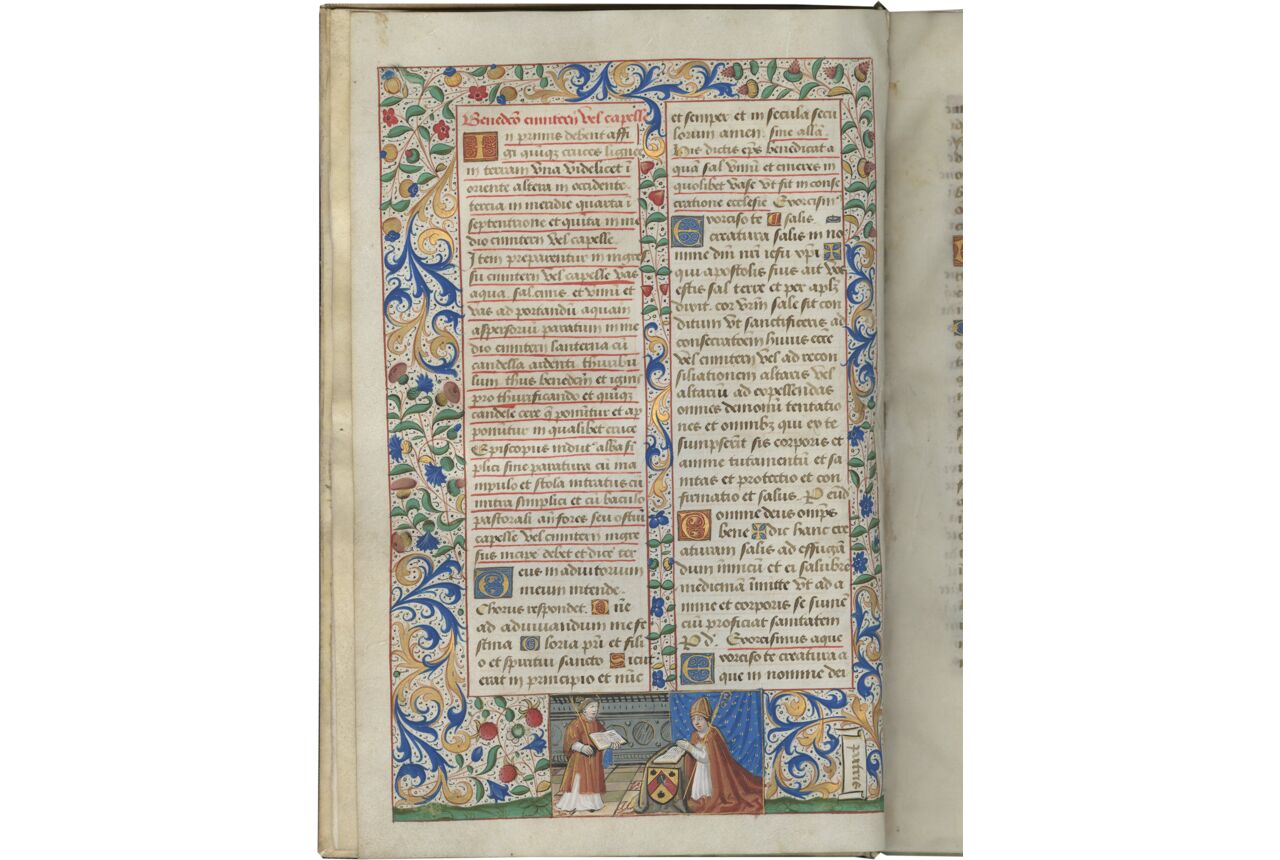 Benedictō cimiterij vel capelle
In primis debent affi
gi quīqz cruces lignee
in terram vna videlicet ī
oriente altera in occidente.
tercia in meridie quarta ī
septentrione et quīta in me
dio cimiterij vel capelle.
Item preparentur in ingres
su cimiterij vel capelle vas
aqua. sal. cinis. et vinū et
vas ad portandū aquam
aspersoriū paratum in me
dio cimiterij lanterna cū
candella ardenti thuribu
lum thus benedcm et ignis
pro thurificando et quīqz
candele cere q̄ ponūtur et ap
ponūtur in qualibet cruce
Episcopus indut9 alba si
plici sine paratura cū ma
nipulo et stola mitratus cū
mitra simplici et cū baculo
pastorali an fores seu ostiū
capelle vel cimiterij ingres
sus incipe debet et dice ter
Deus in adiutorium
meum intende.
Chorus respondet. Dn̄e
ad adiuuandum me fe
stina Gloria pri et fili
o et spiritui sancto Sicut
erat in principio et nūc
et semper et in secula secu
lorum amen. sine alla.
His dictis eps benedicat a
quā sal vinū et cineres in
quolibet vase vt fit in conse
cratione ecclesie. Exorcism9
Exorciso te salis
creatura salis in no
mine dm̄ nr̄i iesu xp̄i
qui apostolis suis ait vos
estis sal terre et per aplz
dixit. cor vrm̄ sale sit con
ditum vt sanctificeris ad
consecratoēm huius ecce
vel cimiterij vel ad recon
siliationem altaris vel
altariū ad expellendas
omnes demonū tentatio
nes et omnibz qui ex te
sumpserīt sis corporis et
anime tutamentū et sa
nitas et protectio et con
firmatio et salus. P eūd
Domine deus omps
bene dic hanc cre
aturam salis ad effugā
dum inimicū et ei salubre
medicinā īmitte vt ad a
nime et corporis se sumē
ciū proficiat sanitatem
P d. Exorcismus aque
Exorciso te creatura a
que in nomine dei